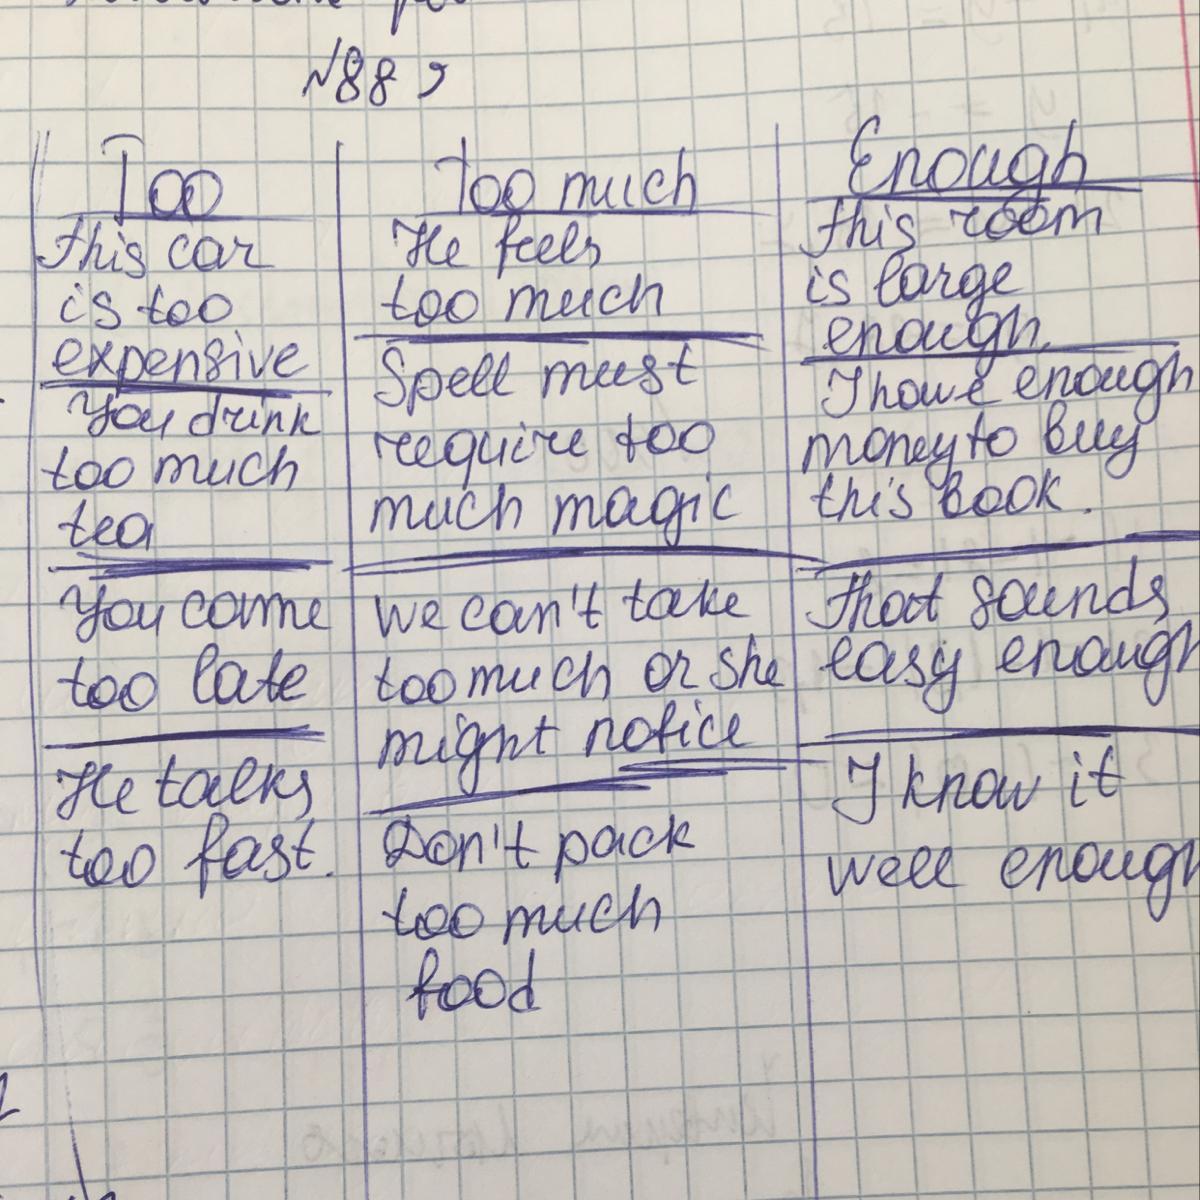 №88
Too
this car
is too
expensive
You drink
too much
tea
You come
too late
He talks
too fast.
Too much
He feels
too much
Spell must
require too
much magic
we can't take
too much or she
might notice
Don't pack
too much
food
Enough
this room
is large
enough.
I have enough
money to buy
this book.
that sounds
easy enough
I know it
well enough